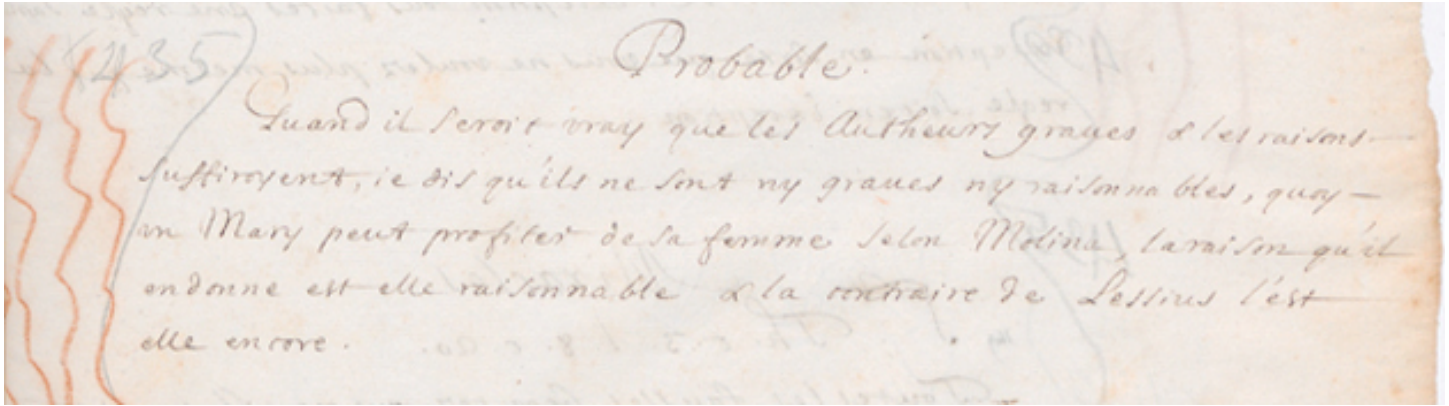 (435)
Probable.
Quand il seroit vray que les Autheurs graues & les raisons
suffiroyent, ie dis qu'ils ne sont ny graues ny raisonnables, quoy
un Mary peut profiter de sa femme selon Molina, la raison qu'il
en donne est elle raisonnable & la contraire de Lessius l'est
elle encore.